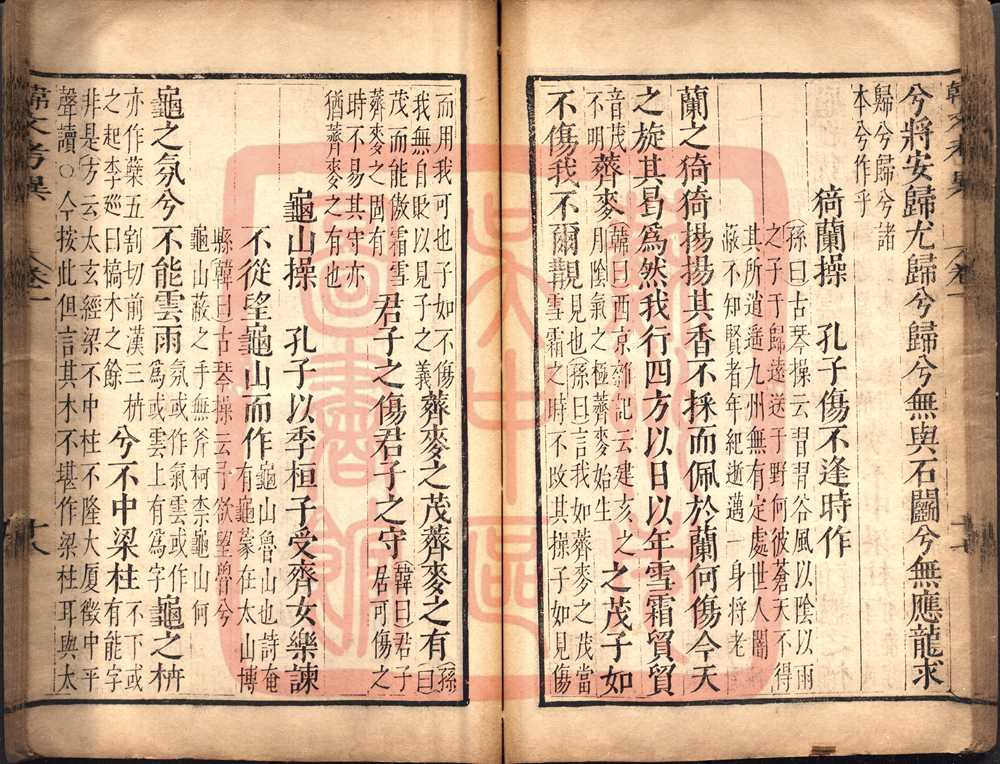 兮將安歸尤歸兮歸兮無與石鬬兮無應龍求
歸兮歸兮諸
本兮作乎
猗蘭操　孔子傷不逢時作
孫曰古琴操云習習谷風以陰以雨
之子于歸遠送于野何彼蒼天不得
其所逍遥九州無有定處世人闇
蔽不知賢者年紀逝邁一身將老
蘭之猗猗揚揚其香不採而佩於蘭何傷今天
之旋其曷爲然我行四方以日以年雪霜貿貿
音茂
不明
薺麥
韓曰西京雜記云建亥之
月陰氣之極薺麥始生
之茂子如
不傷我不爾覯
見也孫曰言我如薺麥之茂當
見雪霜之時不改其操子如見傷
而用我可也子如不傷
我無自貶以見子之義
薺麥之茂薺麥之有
孫曰
茂而能傲霜雪
薺麥之固有
君子之傷君子之守
韓曰君子
君可傷之
時不易其守亦
猶薺麥之有也
龜山操　孔子以季桓子受齊女樂諫
不從望龜山而作
龜山魯山也詩奄
有龜蒙在太山博
縣韓曰古琴操云予欲望魯兮
龜山蔽之手無斧柯柰龜山何
龜之氛兮不能雲雨
氛或作氣雲或作
爲或雲上有爲字
龜之枿
亦作蘖五割切前漢三枿
之起李廵曰槁木之餘
兮不中梁柱
不下或
有能字
非是方云太玄經梁不中柱不隆大厦徵中平
聲讀○今按此但言其木不堪作梁柱耳與太
韓文考異
卷一
十八